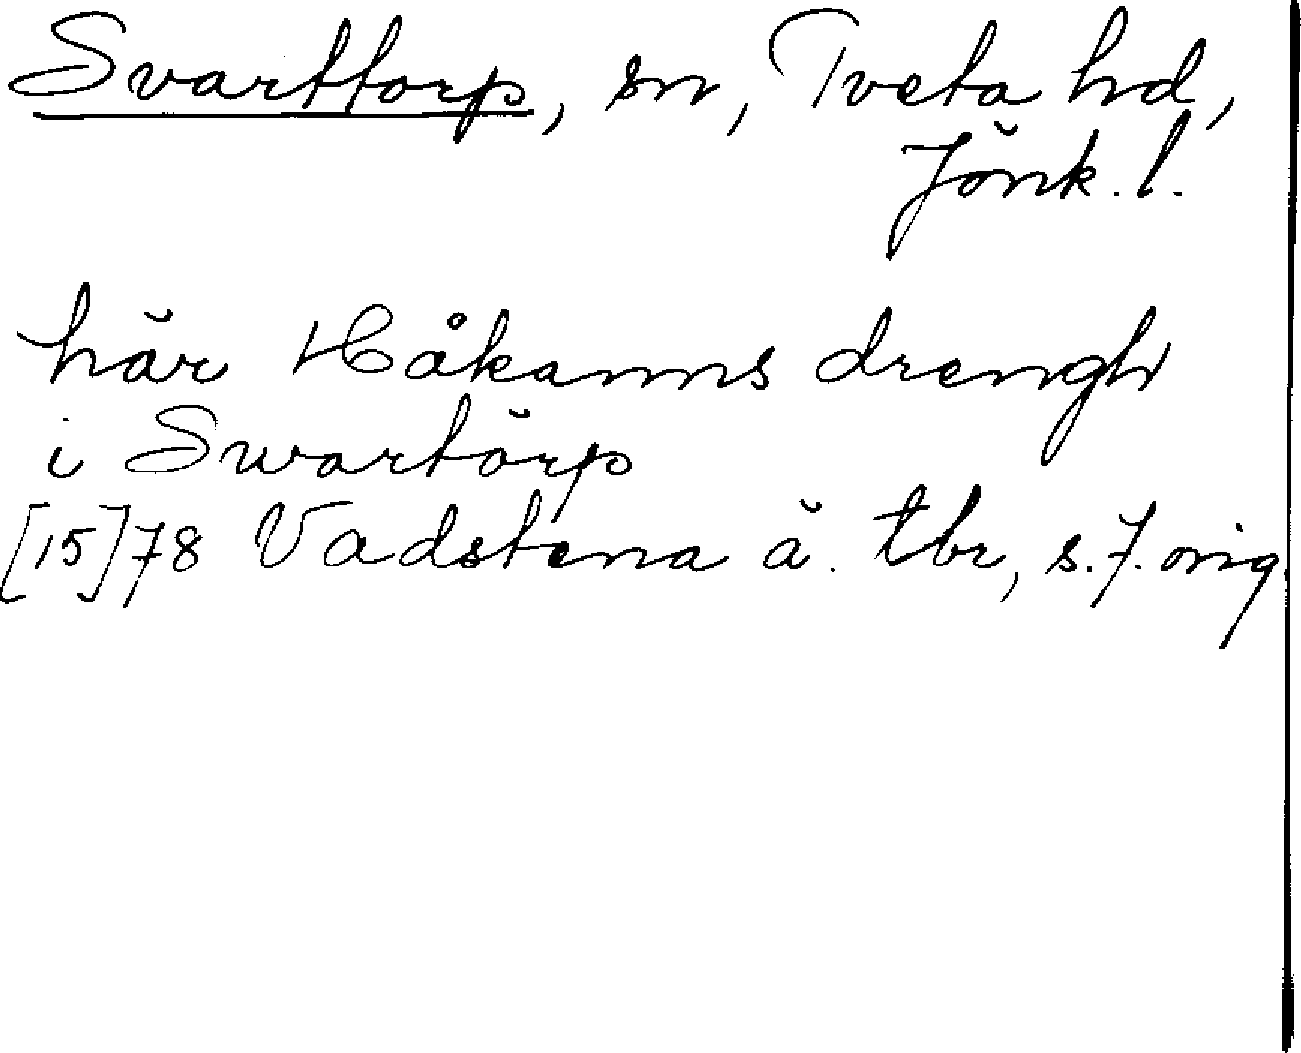 Svarttorp, sn, Tveta hd,
Jönk. l.
här Håkanns drengh
i Swartörp
[15]78 Vadstena ä. tbr, s. 7. orig.